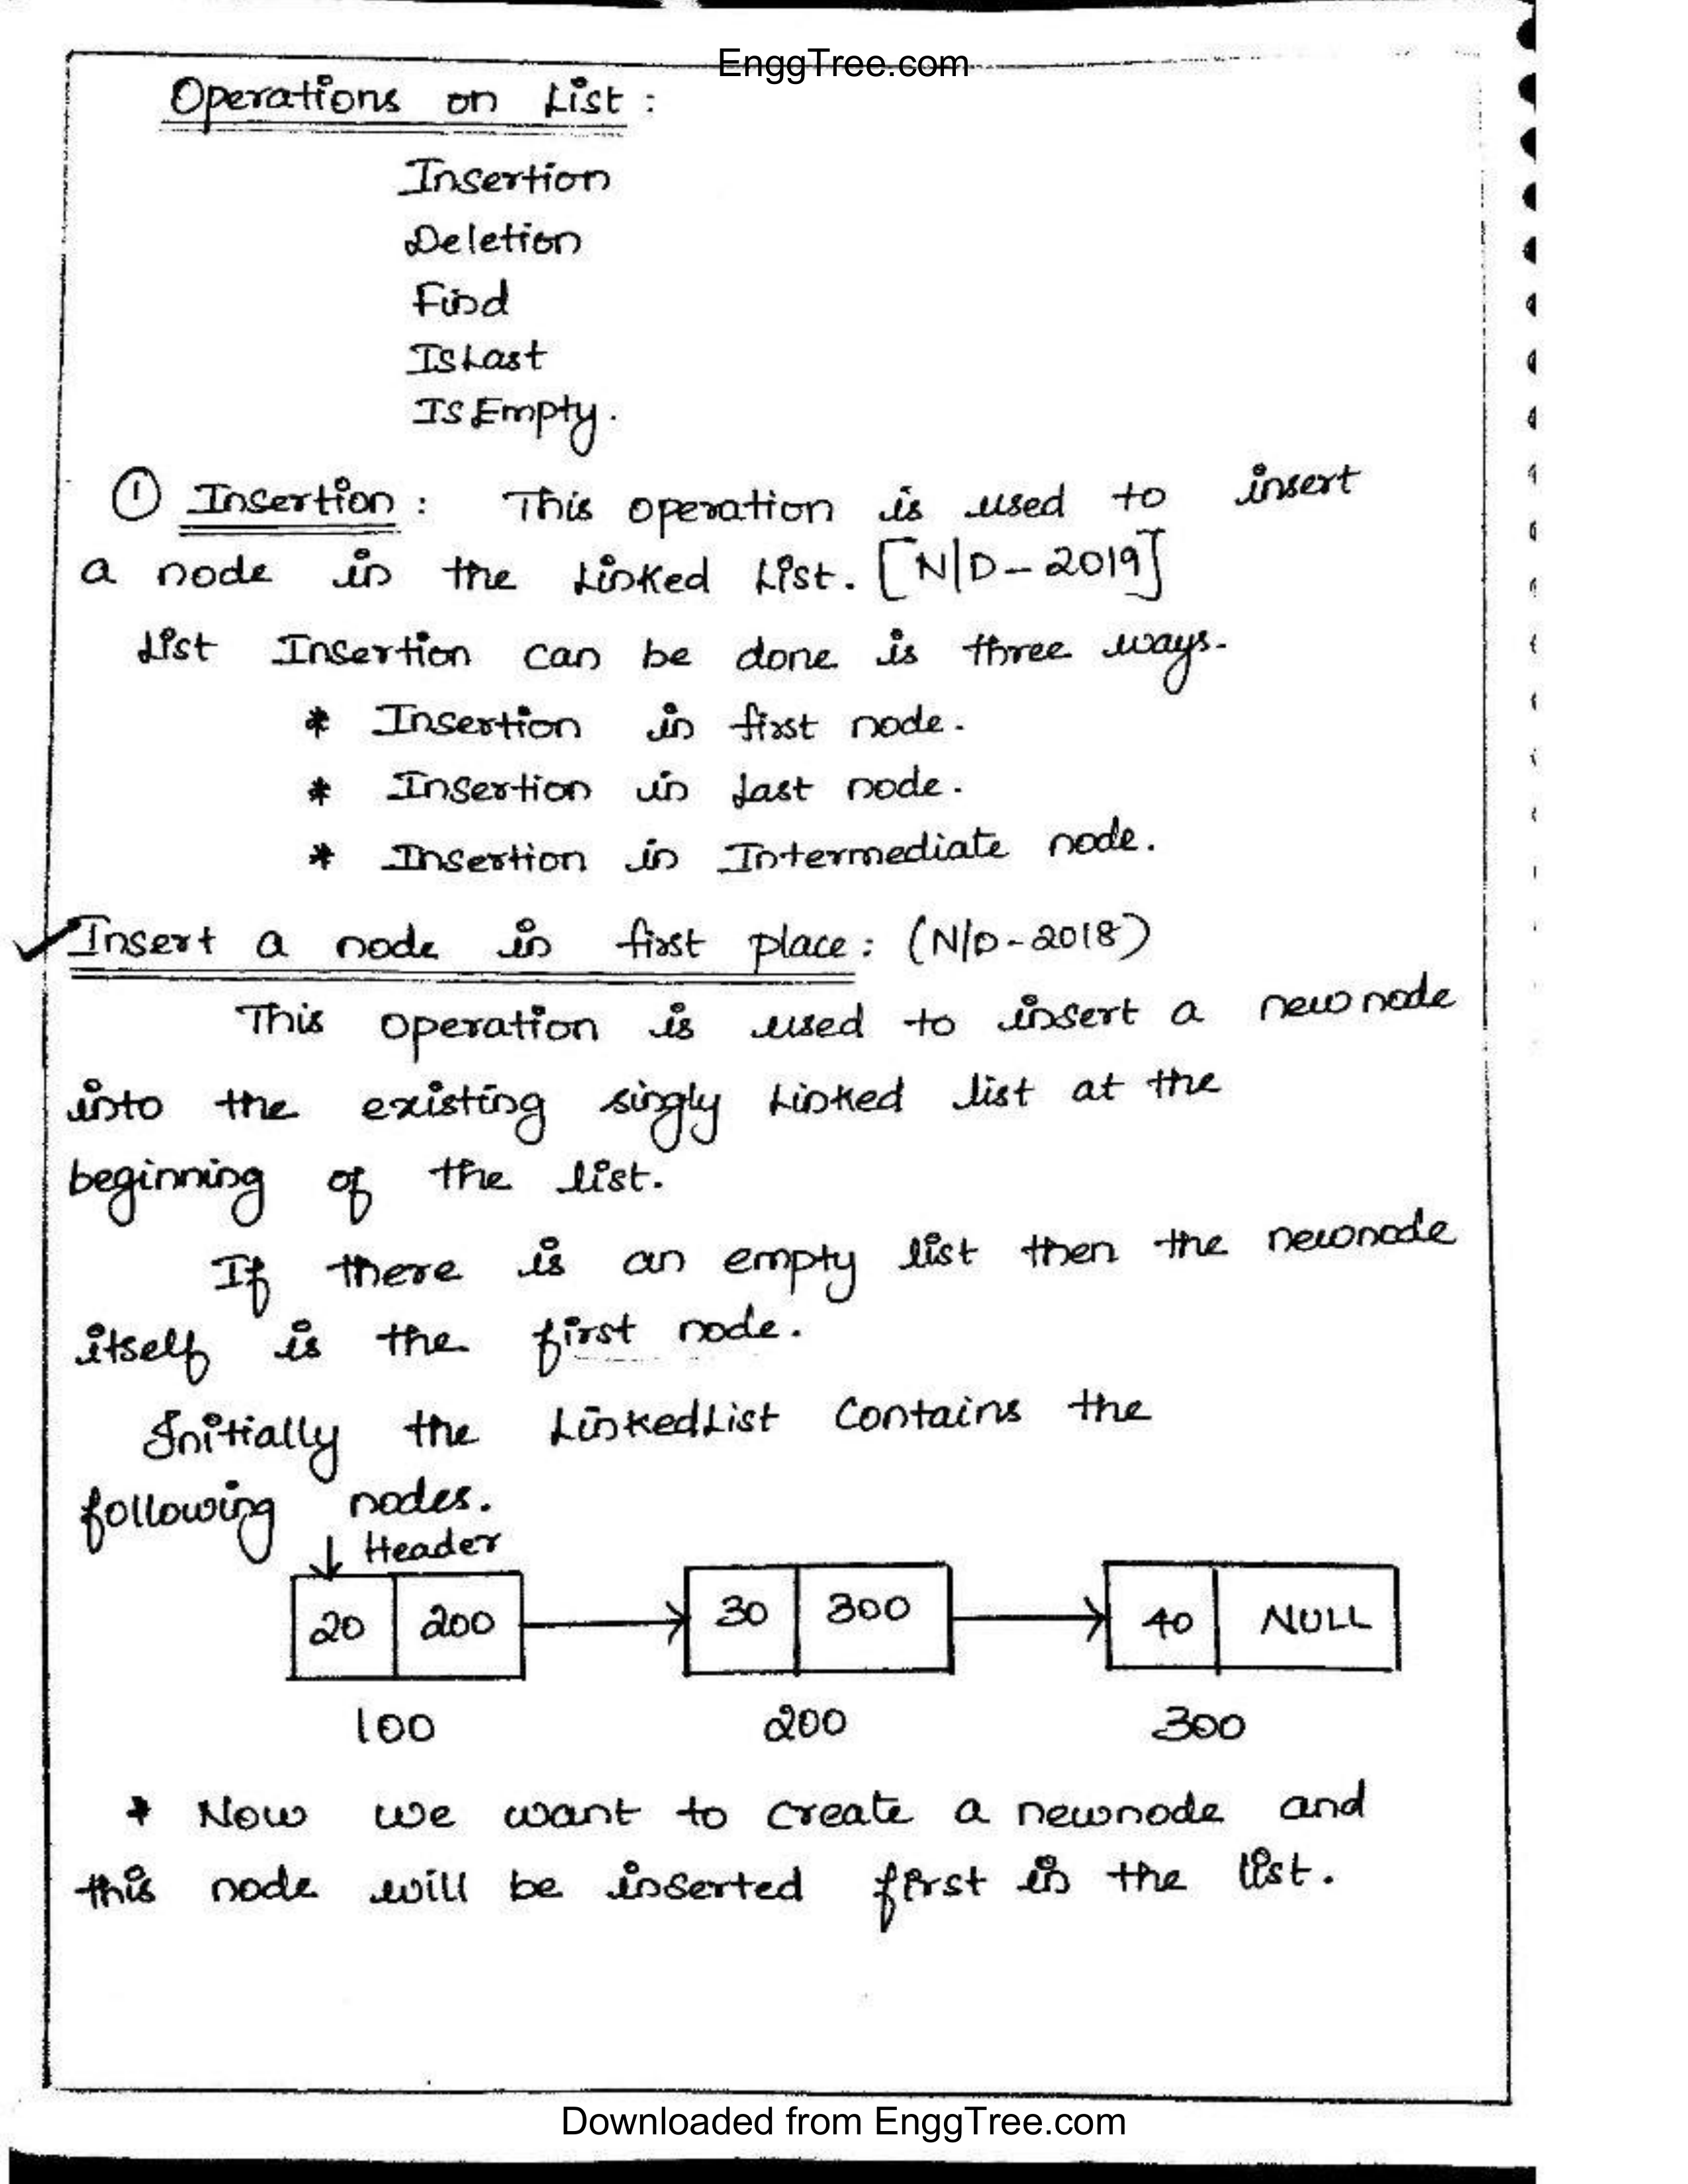 EnggTree.com
Operations on List :
Insertion
Deletion
Find
IsLast
IsEmpty.
① Insertion : This operation is used to insert
a node in the Linked List. [N/D - 2019]
List Insertion can be done is three ways.
* Insertion in first node.
* Insertion in last node.
* Insertion in Intermediate node.
✓ Insert a node in first place : (N/D - 2018)
This operation is used to insert a new node
into the existing singly Linked list at the
beginning of the list.
If there is an empty list then the newnode
itself is the first node.
Initially the LinkedList Contains the
following nodes.
↓ Header
20 200 30 300 40 NULL
100 200 300
* Now we want to create a newnode and
this node will be inserted first in the list.
Downloaded from EnggTree.com